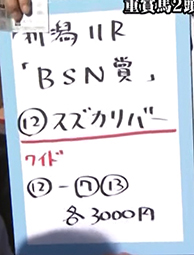 重賞馬2頭
新潟11R
「BSN賞」
⑫スズカリバー
ワイド
⑫-⑦⑬
各3000円